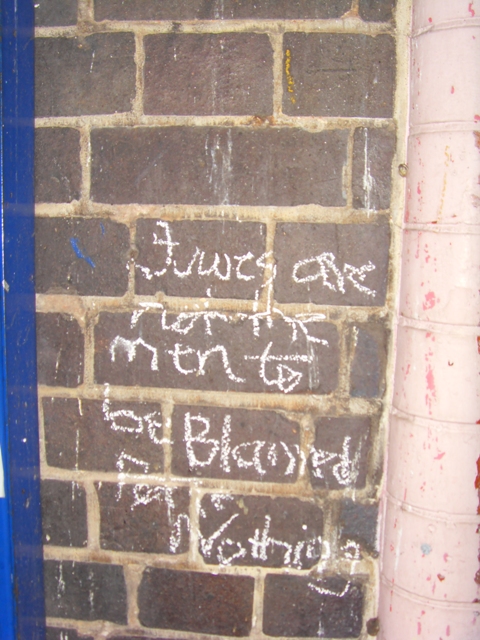 Juwes are
not the
men to
be Blamed
for
Nothing